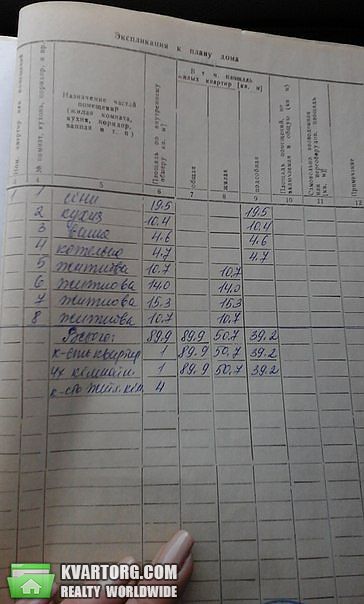 Экспликация к плану дома
Назначение частей помещений (жилая комната, кухня, коридор, ванная и т. п.)
Площадь по внутреннему обмеру (кв. м)
В т. ч. площадь жилых квартир [кв. м]
общая
жилая
подсобная
Площадь помещений, не включенная в общую (кв. м)
Примечание
5 6 7 8 9 10 11 12 13
1 сіни 19.5 19.5
2 кухня 10.4 10.4
3 ванна 4.6 4.6
4 котельня 4.7 4.7
5 житлова 10,7 10,7
6 житлова 14.0 14.0
7 житлова 15.3 15.3
8 житлова 10,7 10,7
Всього: 89,9 89,9 50,7 39.2
к-сть квартир 1 89,9 50,7 39,2
4х кімнатн. 1 89,9 50,7 39,2
к-сть житл. кім. 4
KVARTORG.COM
REALTY WORLDWIDE